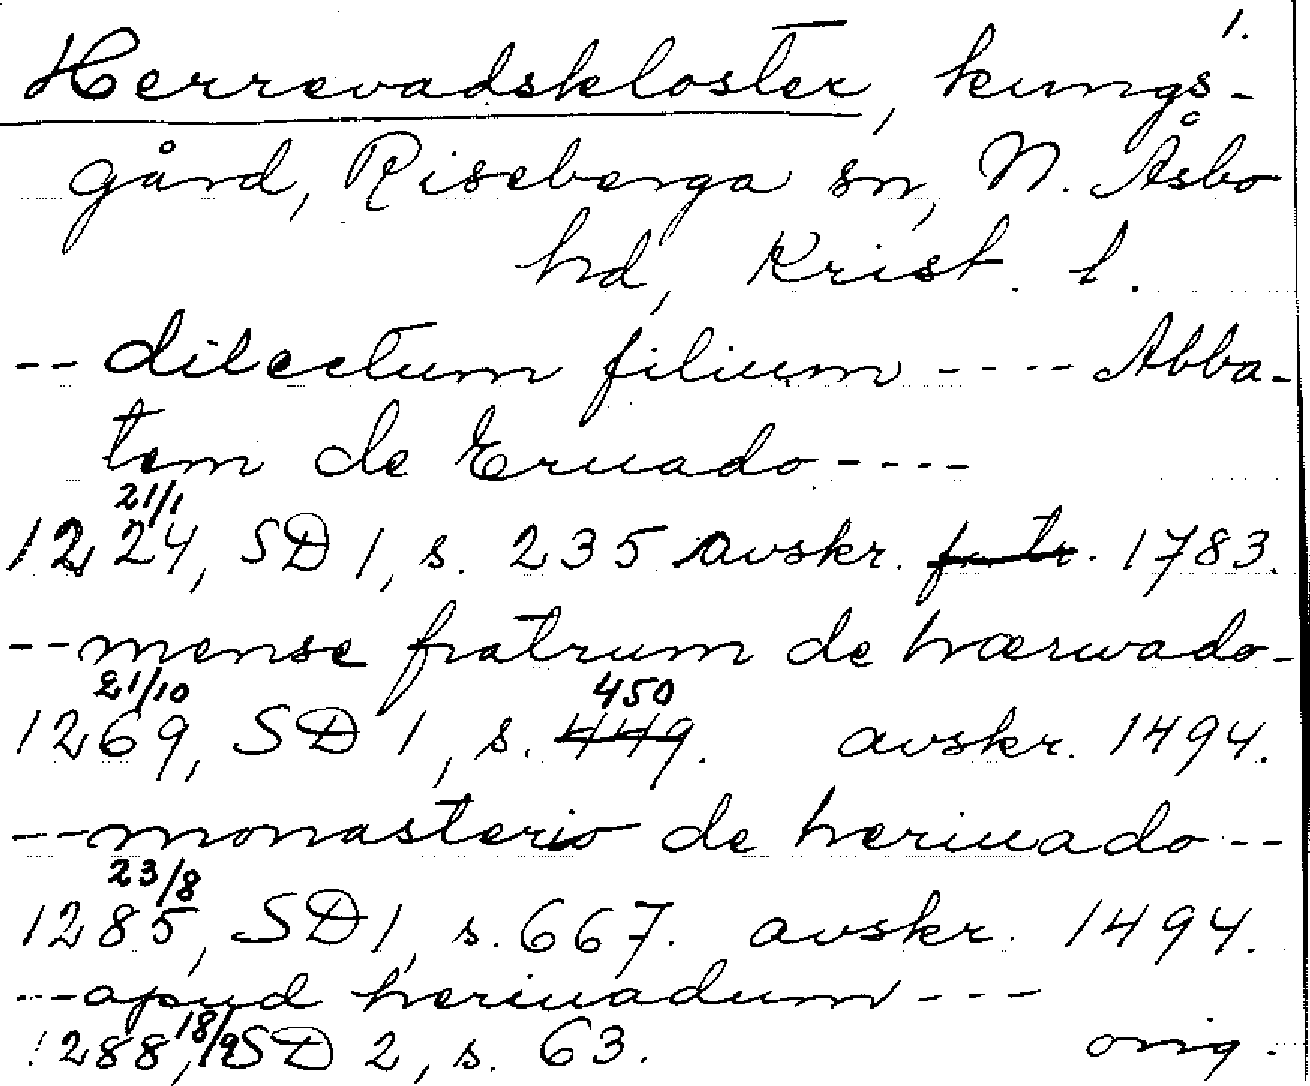 1.
Herrevadskloster, kungs-
gård, Riseberga sn, N. Åsbo
hd, Krist. l.
-- dilectum filium ---- Abba-
tem de Eruado ----
21/1
1224, SD 1, s. 235 avskr. 1783.
-- mense fratrum de hærwado -
21/10 450
1269, SD 1, s. 449. avskr. 1494.
-- monasterio de heriuado --
23/8
1285, SD 1, s. 667. avskr. 1494.
--- apud heriuadum ---
18/9
1288, SD 2, s. 63. orig.